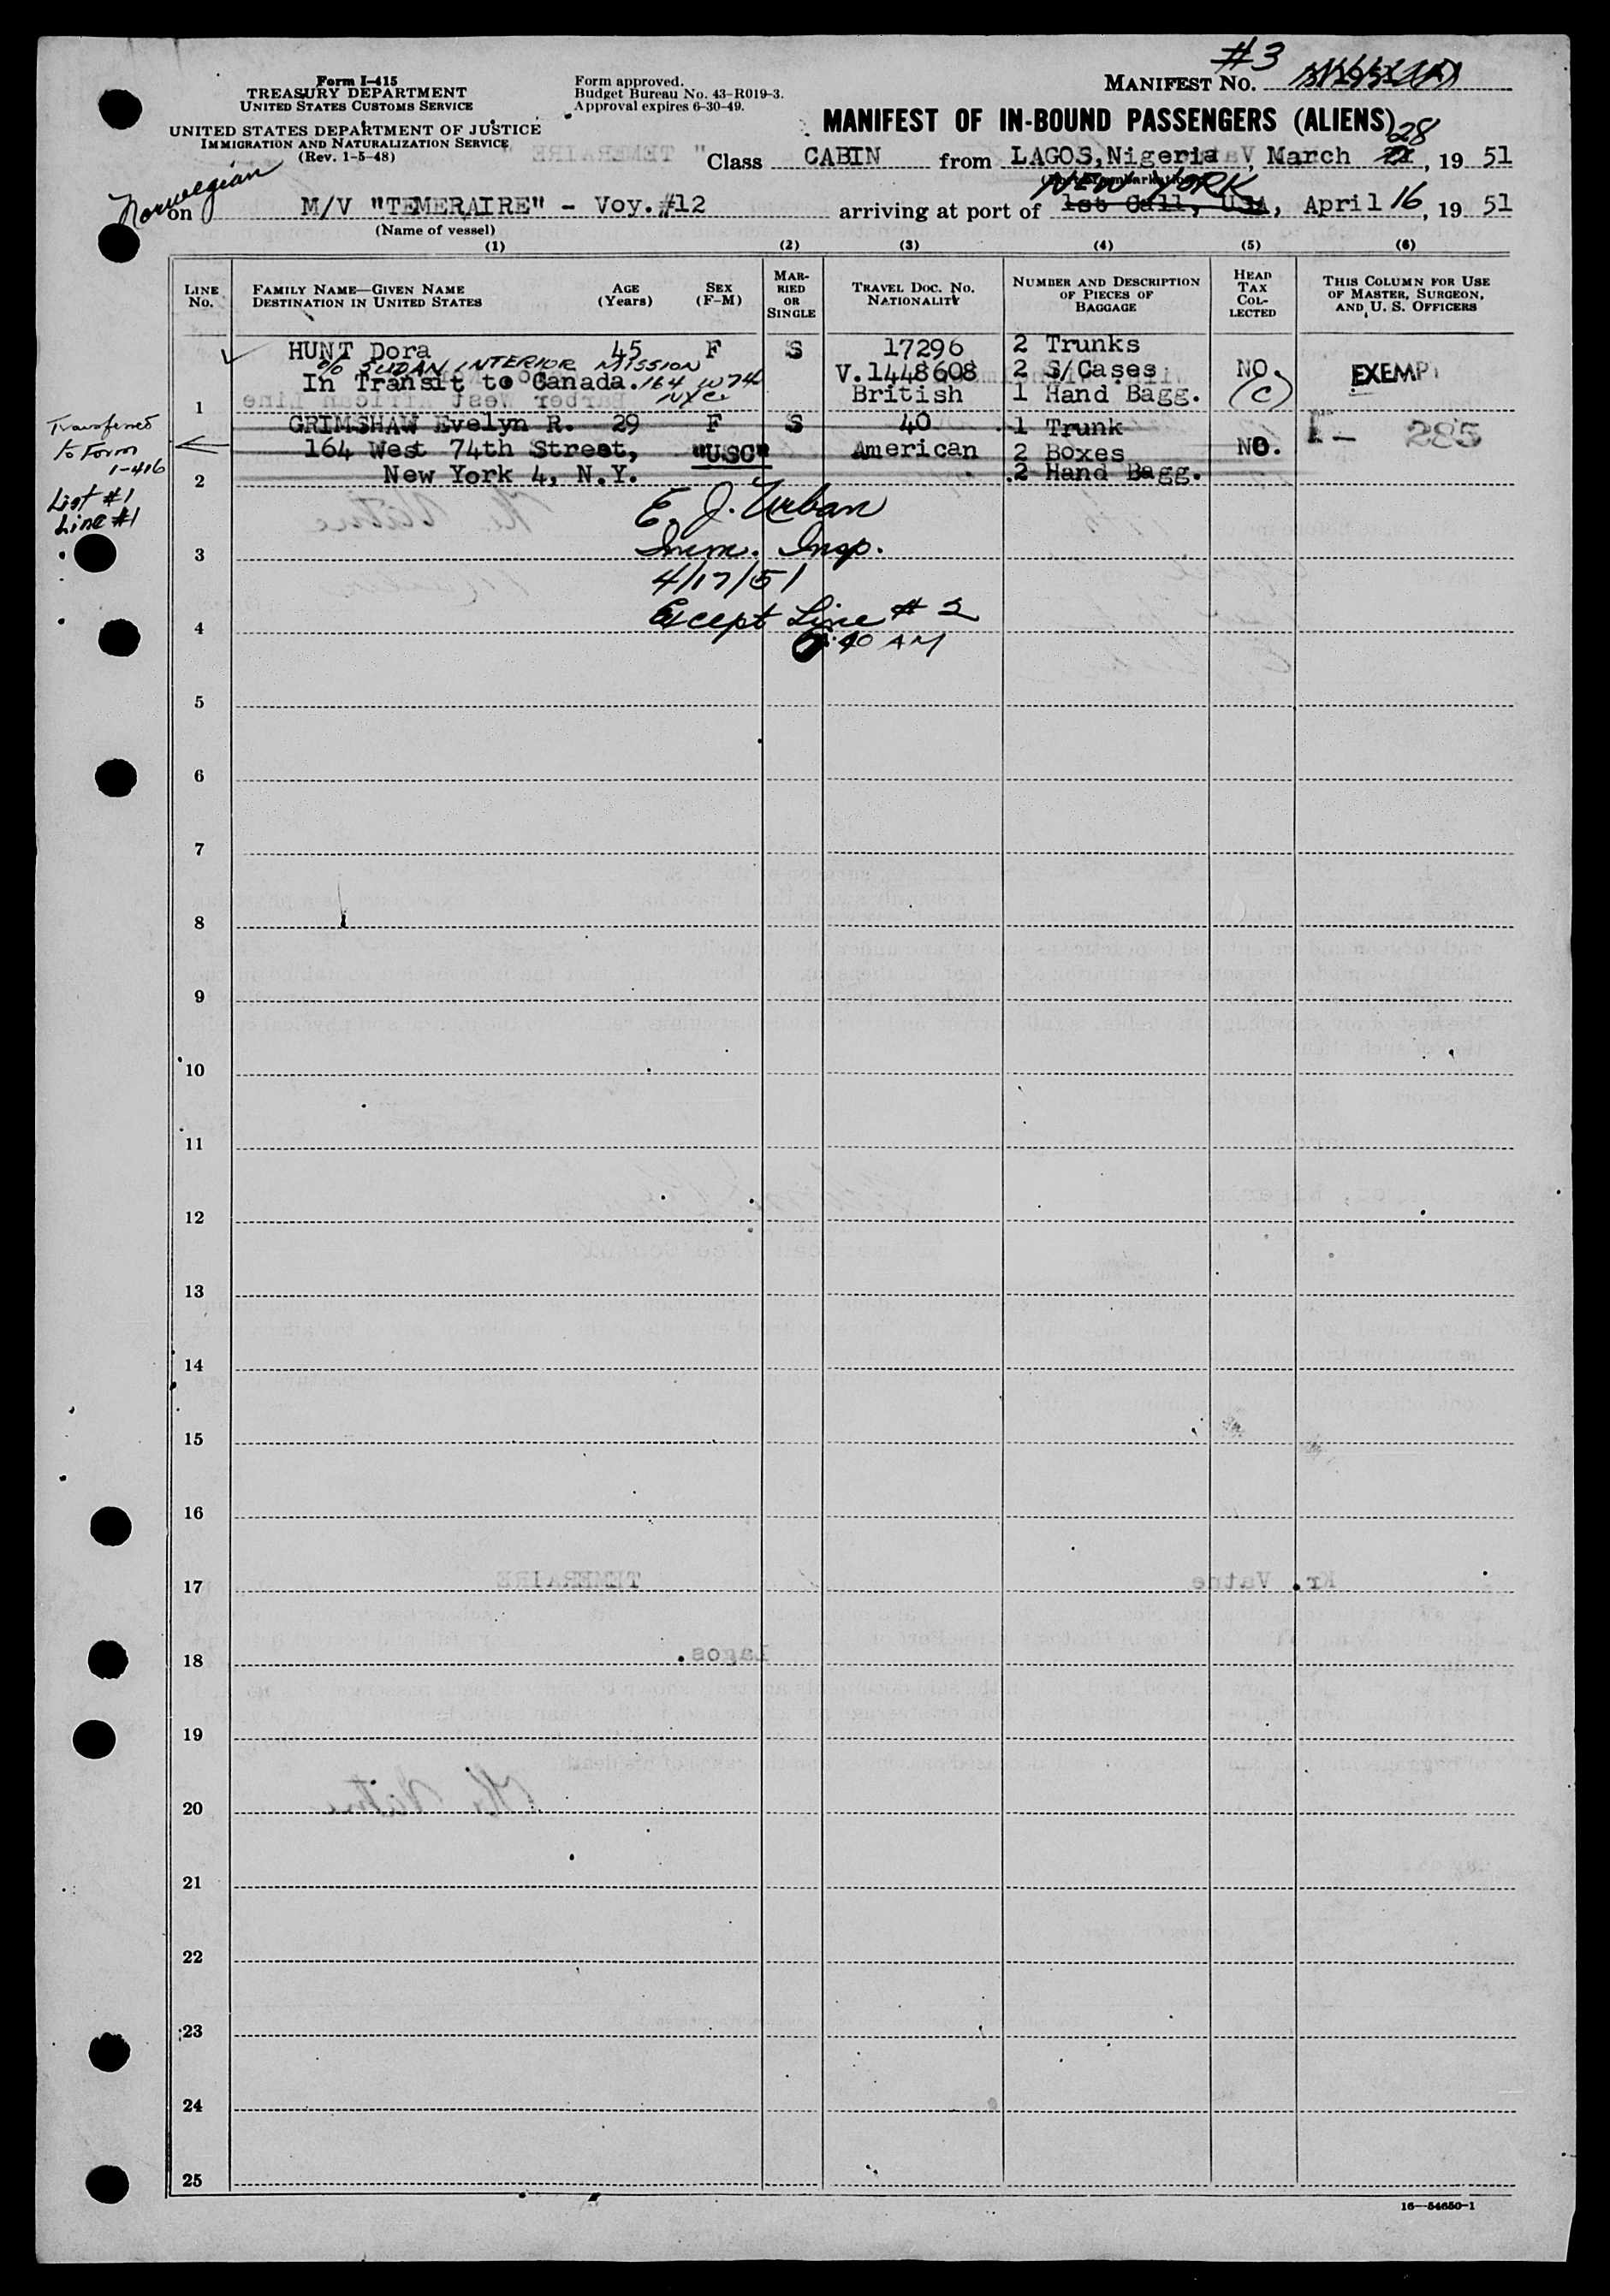 #3
Form I-415
TREASURY DEPARTMENT
UNITED STATES CUSTOMS SERVICE
UNITED STATES DEPARTMENT OF JUSTICE
IMMIGRATION AND NATURALIZATION SERVICE
(Rev. 1-5-48)
Form approved.
Budget Bureau No. 43-R019-3.
Approval expires 6-30-49.
MANIFEST NO.
MANIFEST OF IN-BOUND PASSENGERS (ALIENS)
28
Class CABIN from LAGOS, Nigeria, March , 19 51
Norwegian
NEW YORK
on M/V "TEMERAIRE" - Voy. #12 arriving at port of 1st Call, USA, April 16, 19 51
(Name of vessel)
(1) (2) (3) (4) (5) (6)
LINE No.
FAMILY NAME—GIVEN NAME
DESTINATION IN UNITED STATES
AGE (Years)
SEX (F-M)
MARRIED OR SINGLE
TRAVEL DOC. NO. NATIONALITY
NUMBER AND DESCRIPTION OF PIECES OF BAGGAGE
HEAD TAX COLLECTED
THIS COLUMN FOR USE OF MASTER, SURGEON, AND U. S. OFFICERS
HUNT Dora 45 F S 17296 2 Trunks
c/o SUDAN INTERIOR MISSION
In Transit to Canada. 164 W 74 V.1448608 2 S/Cases NO. EXEMPT
NYC.
1 British 1 Hand Bagg. (C)
GRIMSHAW Evelyn R. 29 F S 40 1 Trunk I- 285
164 West 74th Street, "USC" American 2 Boxes NO.
2 New York 4, N.Y. 2 Hand Bagg.
Transferred
to Form
I-416
List #1
Line #1
E. J. Urban
3 Imm. Insp.
4/17/51
4 Except Line #2
:40 AM
5
6
7
8
9
10
11
12
13
14
15
16
17
18
19
20
21
22
23
24
25
16—54650-1